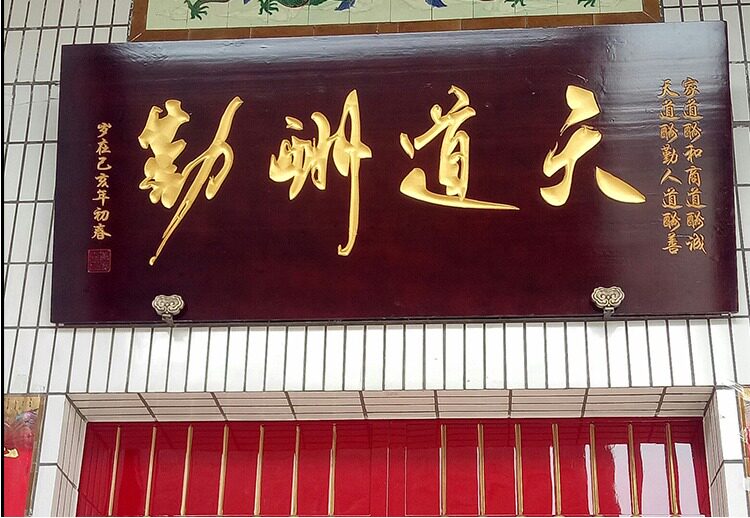 家道酬和商道酬诚
天道酬勤人道酬善
天道酬勤
岁在乙亥年初春